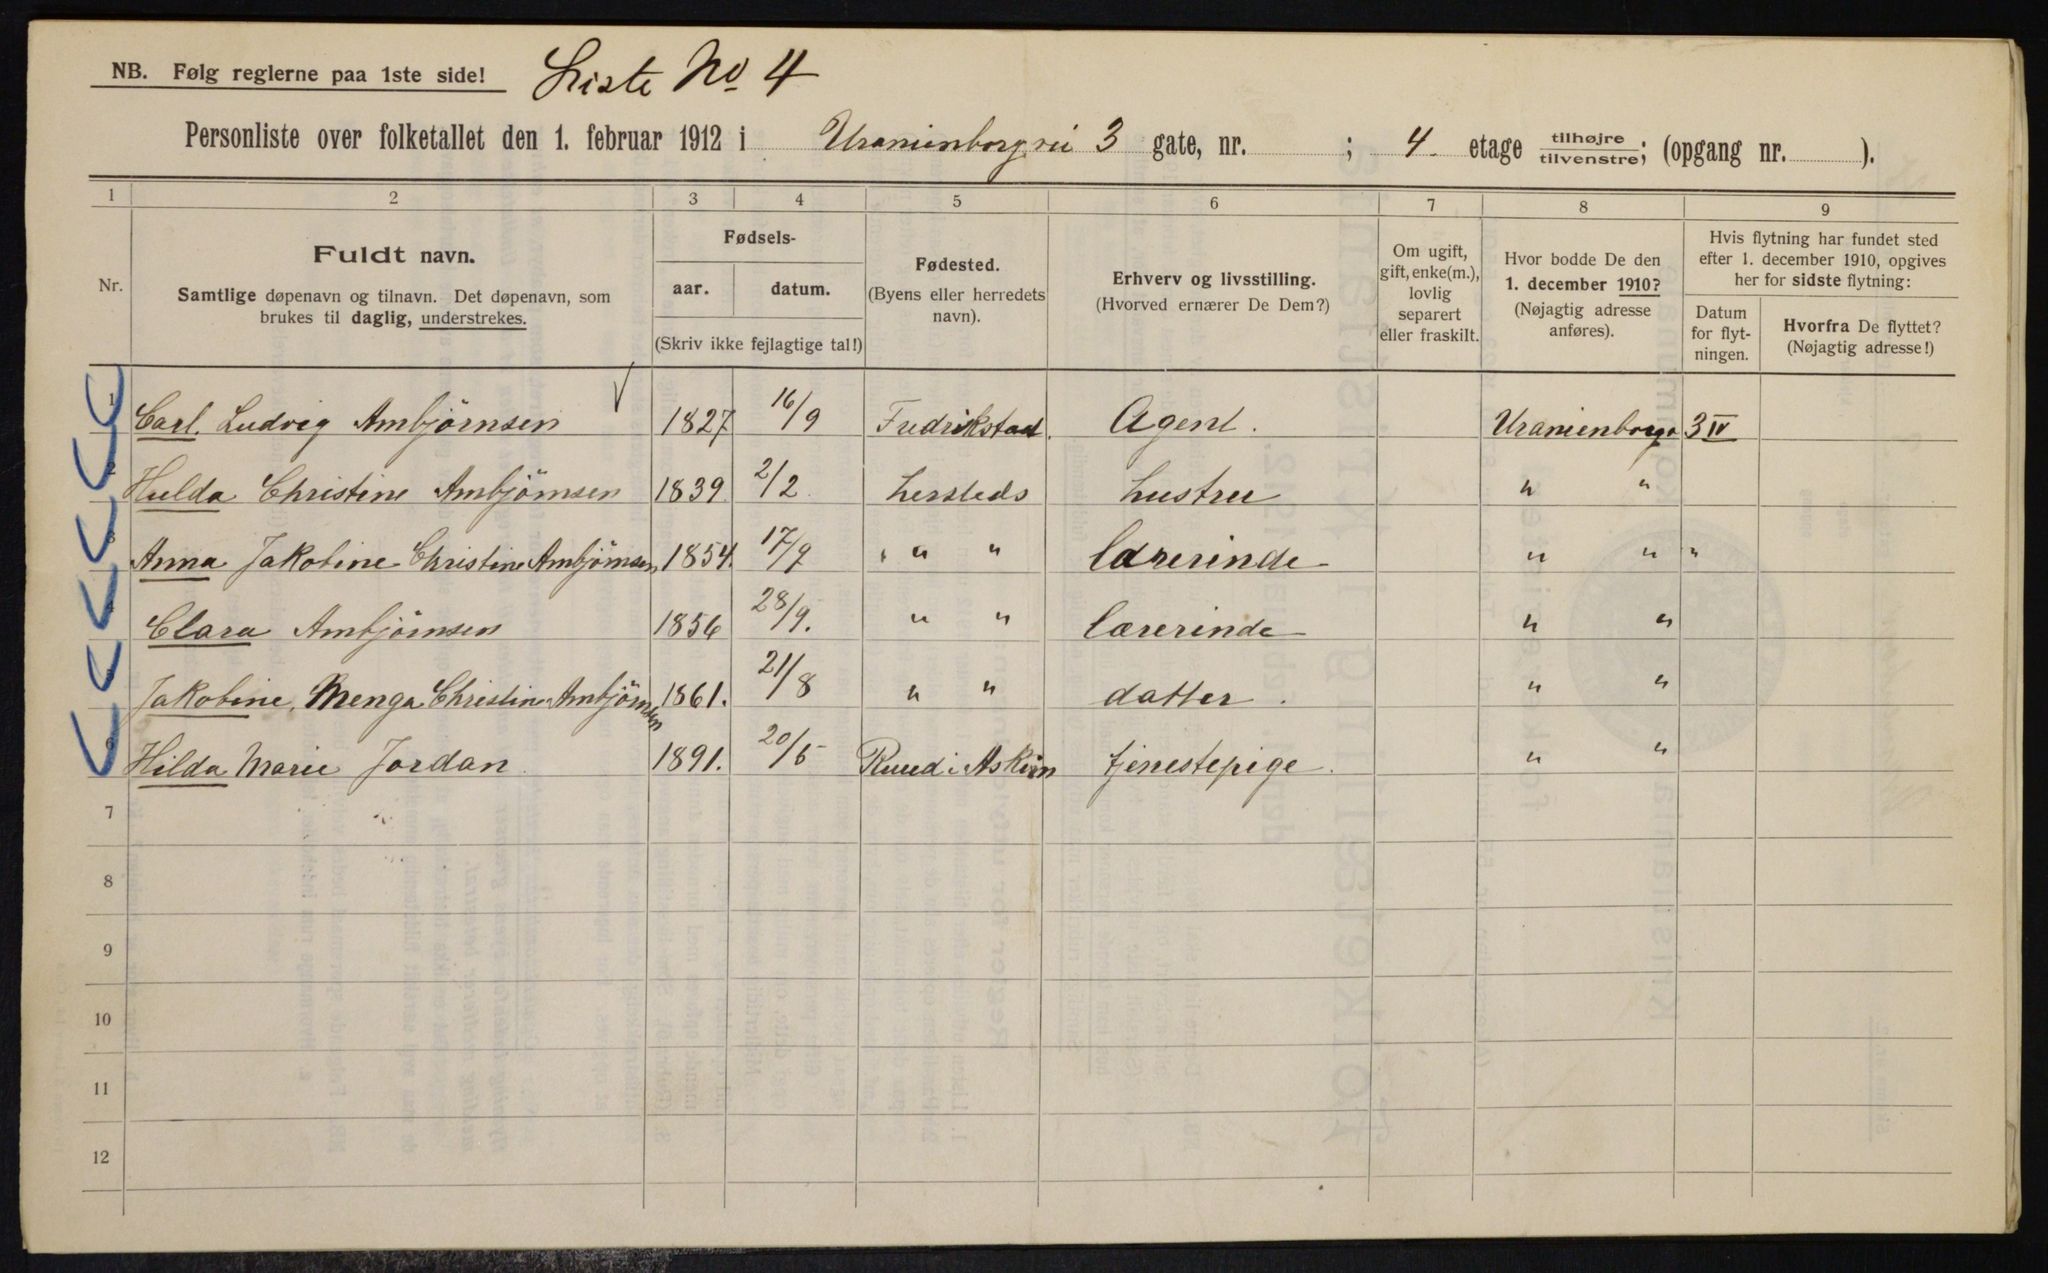 NB. Følg reglerne paa 1ste side! Liste No 4
Personliste over folketallet den 1. februar 1912 i Uranienborgvei 3 gate, nr. ; 4. etage tilhøjre/tilvenstre; (opgang nr. ).
1 2 3 4 5 6 7 8 9
Nr.
Fuldt navn.
Samtlige døpenavn og tilnavn. Det døpenavn, som
brukes til daglig, understrekes.
Fødsels-
aar. datum.
(Skriv ikke fejlagtige tal!)
Fødested.
(Byens eller herredets
navn).
Erhverv og livsstilling.
(Hvorved ernærer De Dem?)
Om ugift,
gift, enke(m.),
lovlig
separert
eller fraskilt.
Hvor bodde De den
1. december 1910?
(Nøjagtig adresse
anføres).
Hvis flytning har fundet sted
efter 1. december 1910, opgives
her for sidste flytning:
Datum
for flyt-
ningen.
Hvorfra De flyttet?
(Nøjagtig adresse!)
1 Carl. Ludvig Ambjörnsen 1827 16/9 Fredrikstad. Agent. Uranienborgv 3 IV
2 Hulda Christine Ambjörnsen 1839. 2/2 hustru " "
3 Anna Jakobine Christine Ambjörnsen 1854. 17/9 " " lærerinde " " "
4 Clara Ambjörnsen 1856 28/9. " " lærerinde " "
5 Jakobine, Menga Christine Ambjörnsen 1861. 21/8 " " datter. " "
6 Hilda Marie Jordan. 1891. 20/5 Ruud i Askim tjenestepige. " "
7
8
9
10
11
12